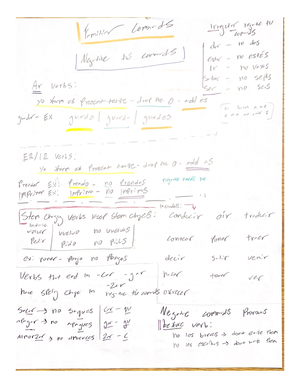 Familiar Commands
Negative tú commands
Irregular negative tú commands
dar - no des
estar - no estés
ir - no vayas
saber - no sepas
ser - no seas
Ar Verbs:
yo form of present tense - drop no O - add es
EX guardo | guard | guardes
ER/IR Verbs:
yo form of present tense - drop no O - add as
Prender EX: Prendo - no Prendas
Imprimir EX: Imprimo - no imprimas
Stem chgng verbs keep stem chges:
volver | vuelvo | no vuelvas
Pedir | Pido | no Pidas
ex: poner - pongo no Pongas
conducir oir traducir
conocer Poner traer
decir salir venir
hacer tener ver
ofrecer
Verbs that end in -car -gar
-zar
have spelling chge in negative tú commands
Sacar → no saques car - qu
→ no gar - gu
almorzar → no almuerces zar - c
Negative commands Pronouns
before verb:
no los borres → don't erase them
no los escribas → don't write them